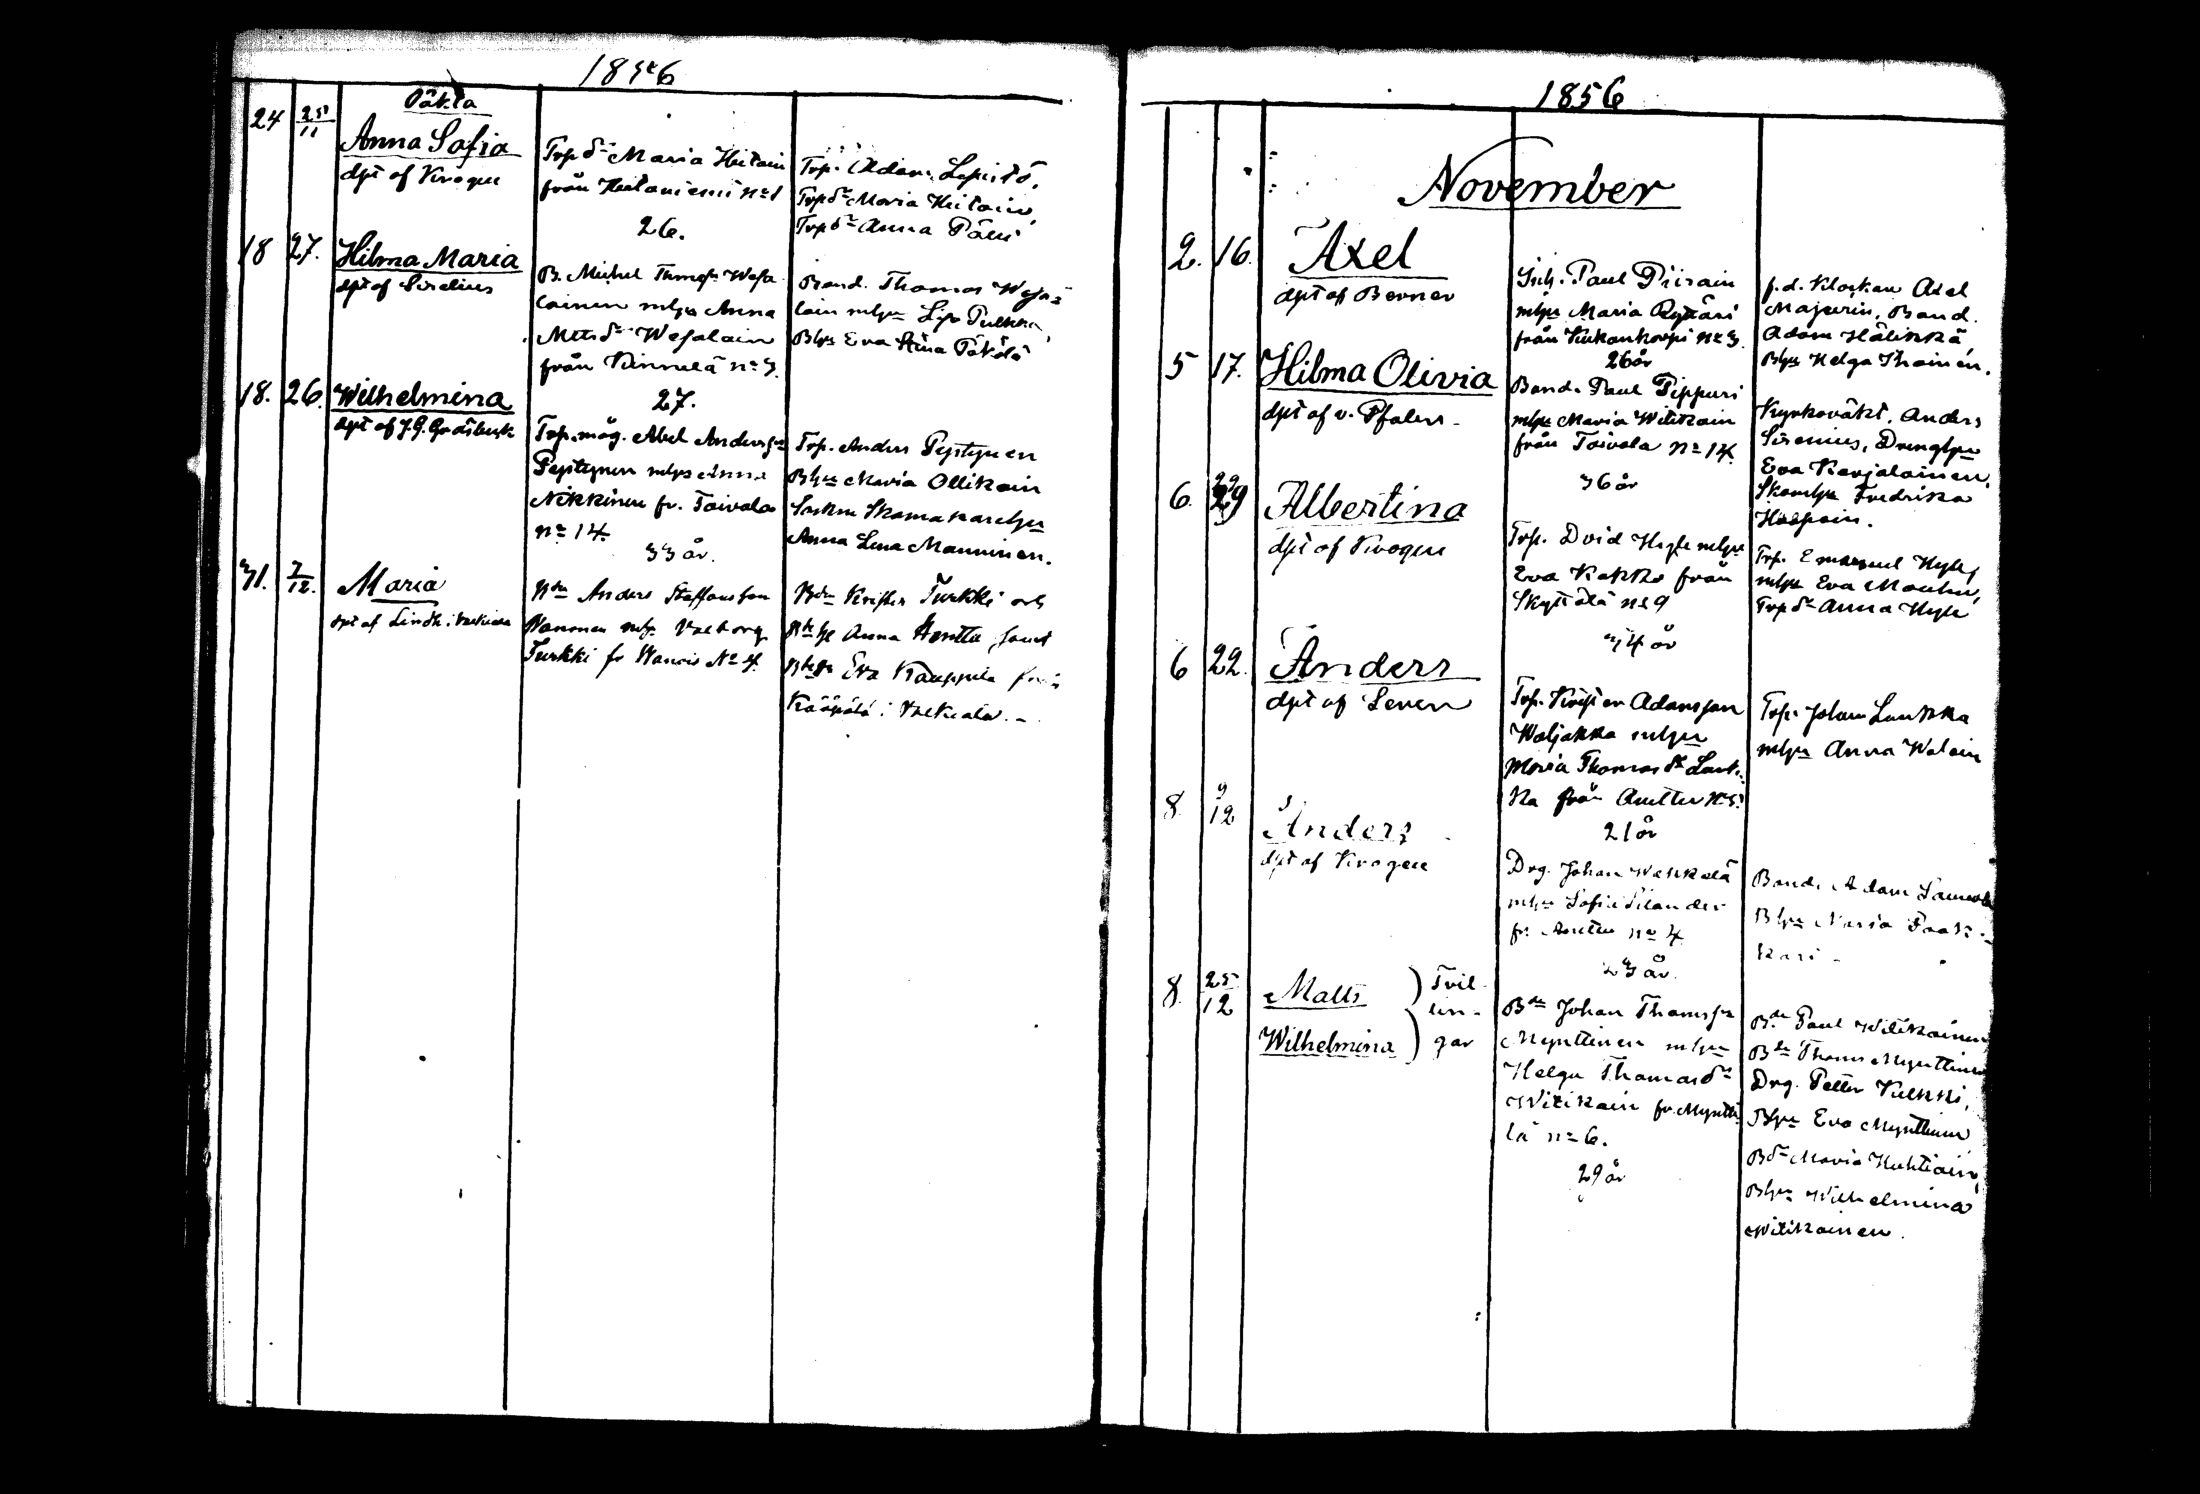 1856
24 25/11 Oäkta
Anna Sofia
dpt af Krogen
Trp dr Maria Heitain
från Heitaniemi No 1
26.
Trp. Adam Lepistö,
Trp dr Maria Heitain,
Trp dr Anna Pälli
18 27. Hilma Maria
dpt af Sirelius
B. Michel Thomass. Wesa
lainen mhu Anna
Mattsdr Wesalain
från Kinnelä No 3.
27.
Bond. Thomas Wesa
lain mhu Lisa Pulkki,
Bhu Eva Stina Pökölä
18. 26. Wilhelmina
dpt af J. G. Grådsbeck
Trp.måg. Abel Anderss.
Pesstynen mhu Anna
Nikkinen fr. Toivola
No 14.
33 år.
Trp. Anders Pesstynen
Bhu Maria Ollikain
Anna Lena Manninen.
31. 7/12. Maria
dpt af Lindh i Walkeala
Bdn Anders Staffansson
Wanonen mh. Walborg
Turkki fr Wanois No 4.
Bdn Krister Turkki och
Anna Anttla samt
Eva Kauppila från
Kääpälä i Walkeala. -
1856
November
2. 16. Axel
dpt af Berner
Inh. Paul Piirain
mhu Maria Ryttäri
från Kiukankorpi No 3.
26 år
f.d. Klockan Axel
Majurin, Bond.
Adam Hälikkä
Bhu Helga Ihainen.
5 17. Hilma Olivia
dpt af v. Pfaler
Bond. Paul Pippuri
mhu Maria Witikain
från Toivola No 14.
36 år
Kyrkoväkt. Anders
Sirenius, Drenghu
Eva Karjalainen,
Skomhu Fredrika
Haapain.
6. 29 Albertina
dpt af Krogen
Trp. David Hyle mhu
Eva Kakko från
Skyttälä No 9
34 år
Trp. Emanuel Hyle,
mhu Eva Mouhu,
Trp dr Anna Hyle
6 22. Anders
dpt af Seven
Trp. Krister Adamsson
Waljakka mhu
Maria Thomasdr Lauk-
ka från Anttu No 5.
21 år
Trp. Johan Laukka
mhu Anna Walain
8. 9/12 Anders
dpt af Krogen
Drg. Johan Wakkala
mhu Sofia Silander
fr. Anttu No 4
23 år.
Bond. Adam
Bhu Maria Paak-
kari -
8. 25/12 Matts
Wilhelmina
Tvil-
lin-
gar
Bdn Johan Thomass.
Mynttinen mhu
Helga Thomasdr
Witikain fr. Myntti
lä No 6.
29 år
Bdn Paul Witikainen
Bdn Thoms Mynttinen
Drg. Petter Kulkki,
Bhu Eva Mynttinen
Bdr Maria Huhtiain,
Bhu Wilhelmina
Witikainen.